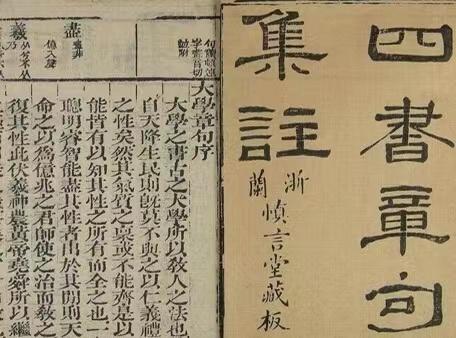 四書章句
集註
浙蘭
慎言堂藏板
大學章句序
大學之書古之大學所以敎人之法也
自天降生民則旣莫不與之以仁義禮
之性矣然其氣質之稟或不能齊是以
能皆有以知其性之所有而全之也一
聰明睿智能盡其性者出於其閒則天
命之以爲億兆之君師使之治而敎之
復其性此伏羲神農黃帝堯舜所以繼
盡
義